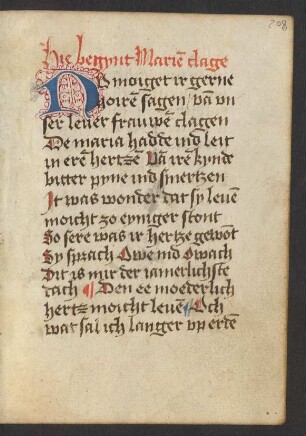 208
Hie begynt Mariē clage
Nv moiget ir gerne
hoiren sagen van vn
ser lever frauwē clagen
De maria hadde ind leit
in erē hertzē Vā irē kynde
bitter pyne ind smertzen
It was wonder dat sy levē
moicht zo eyniger stont
So sere was ir hertze gewōt
Sy sprach Owe ind Owach
Dit is mir der iamerlichste
dach ¶ Den ee moederlich
hertz moicht levē ¶ Och
wat sal ich langer vp erdē